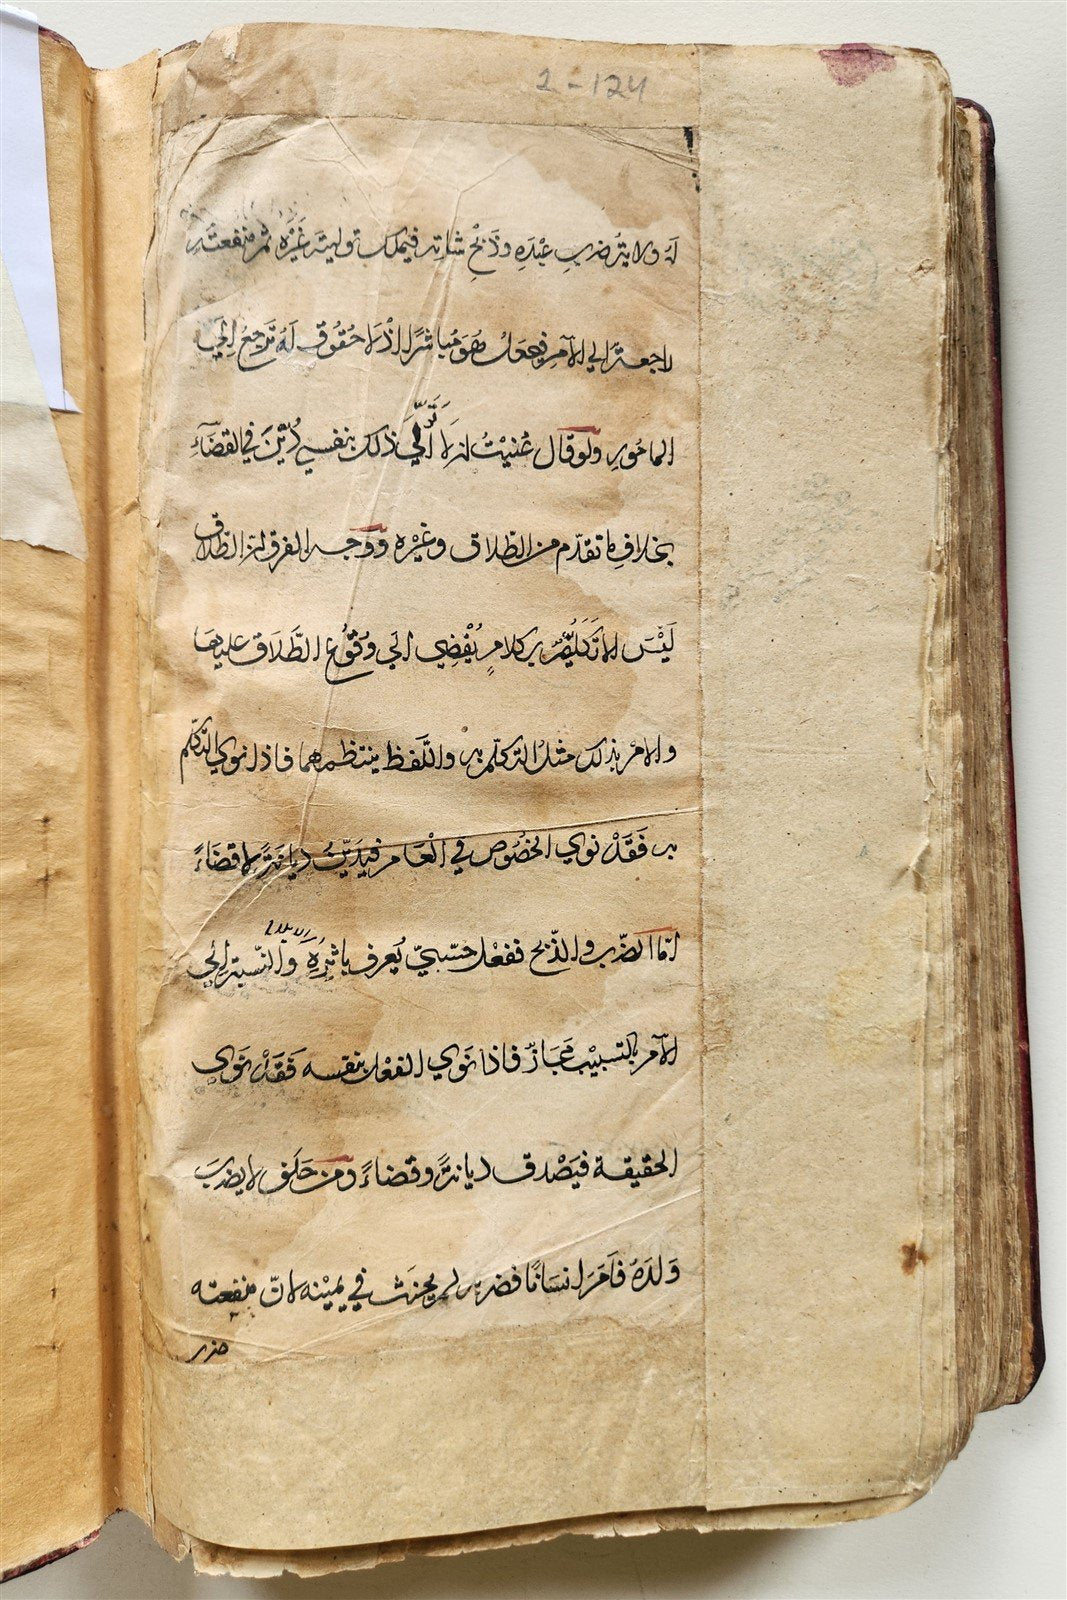 2-124
له ولاية ضرب عبده وذبح شاته فيملك توليته غيره ثم منفعته
راجعة الي الآمر فيجعل هو مباشرا اذ لا حقوق له ترجع الي
المامور ولو قال عنيت ان لا اَلِيَ ذلك بنفسي دُيّن في القضآء
بخلاف ما تقدّم من الطّلاق وغيره ووجه الفرق ان الطّلاق
لَيْسَ الا تَكَلُّمٌ بكلامٍ يُفْضِي الي وقُوُع الطَّلَاق عليها
والامر بذلك مثل التكلّم به واللّفظ ينتظمهما فاذا نوي التّكلم
به فَقَدْ نوي الخصُوص في الْعَام فيَديّنُ ديانةً لا قضَاءً
والايلام
امّا الضّرب والذّبح ففعل حسّيّ يُعرف باثره والنّسبة اِلي
الآمر بالتسبيب مَجَازٌ فاذا نَوي الفعل بنفسه فَقَدْ نَوي
الحقيقة فيَصْدق ديانةً وقضاءً ومن حَلَف لا يضربَ
وَلدَهُ فاَمَرَ انسَانًا فضربه لم يحنث في يمينه لانّ منفعته
ضرر